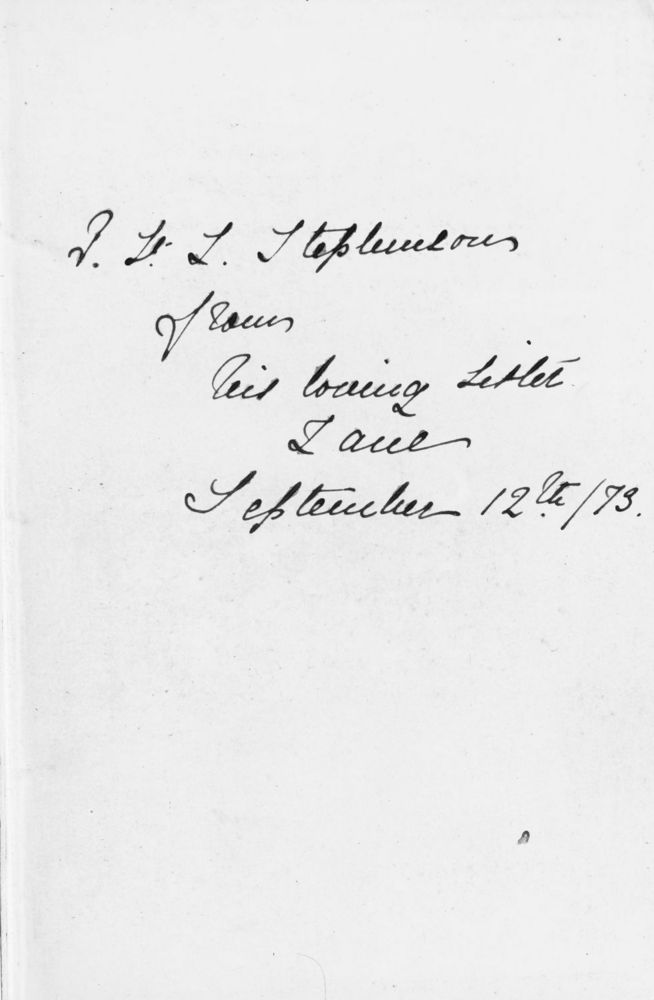 Stephenson
from
his loving sister
Jane
September 12th/73.